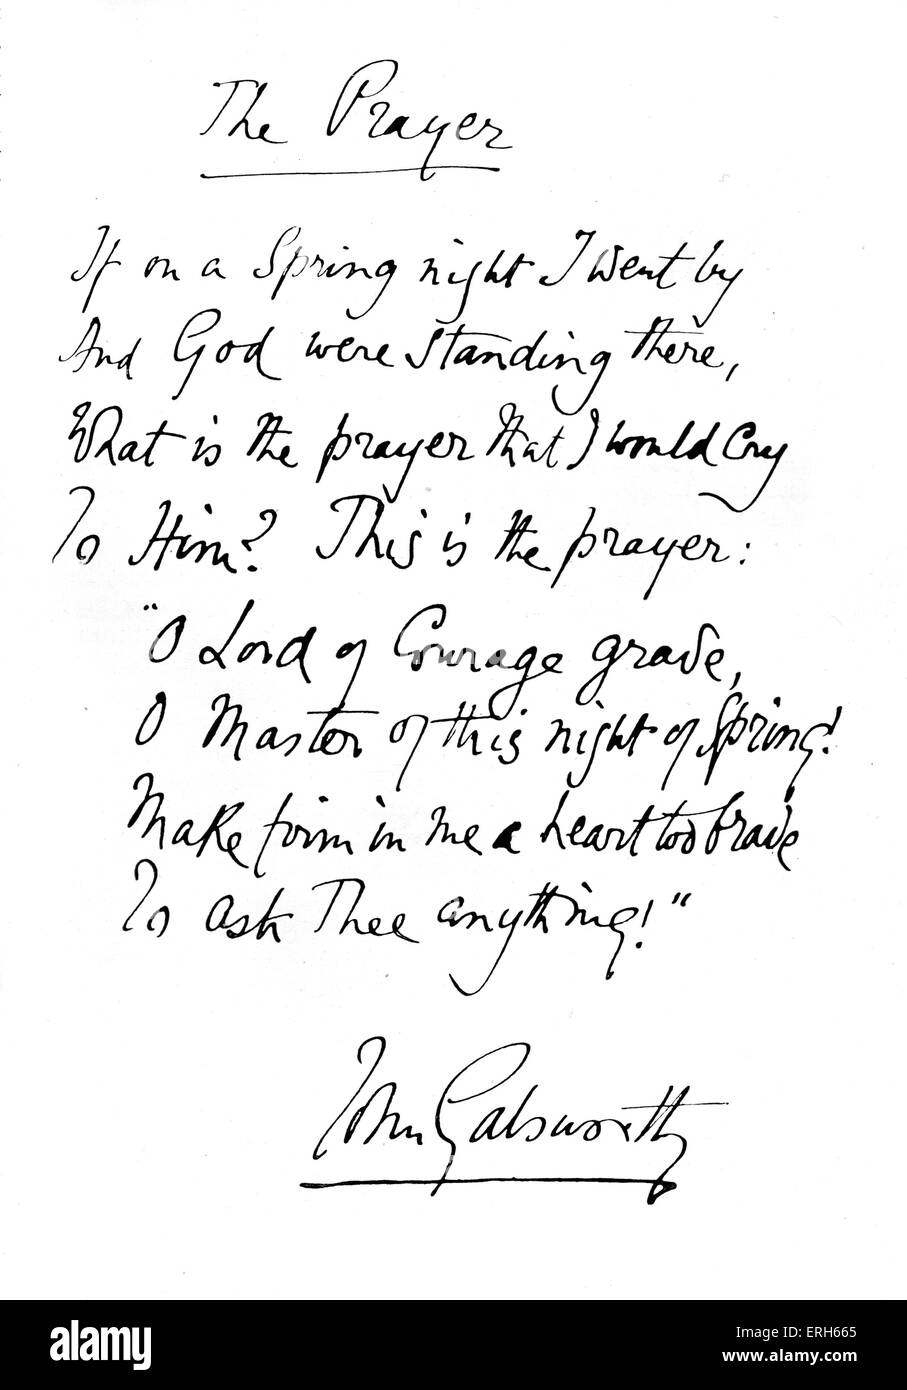 The Prayer
If on a Spring night I went by
And God were standing there,
What is the prayer that I would cry
To Him? This is the prayer:
"O Lord of Courage grave,
O Master of this night of Spring!
Make firm in me a heart too brave
To ask Thee anything!"
John Galsworthy
alamy
Image ID: ERH665
www.alamy.com